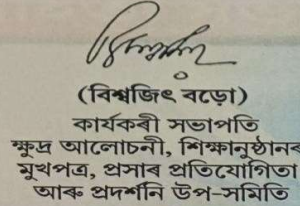 (বিশ্বজিৎ বড়ো)
কাৰ্যকৰী সভাপতি
ক্ষুদ্ৰ আলোচনী, শিক্ষানুষ্ঠানৰ
মুখপত্ৰ, প্ৰসাৰ প্ৰতিযোগিতা
আৰু প্ৰদৰ্শনি উপ-সমিতি